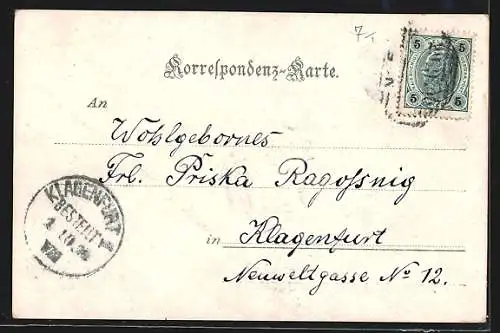 7-
5 5
Korrespondenz-Karte.
5 5
An
Wohlgebornes
Frl. Priska Ragossnig
in Klagenfurt
Neuweltgasse No 12.
KLAGENFURT
BESTELLT